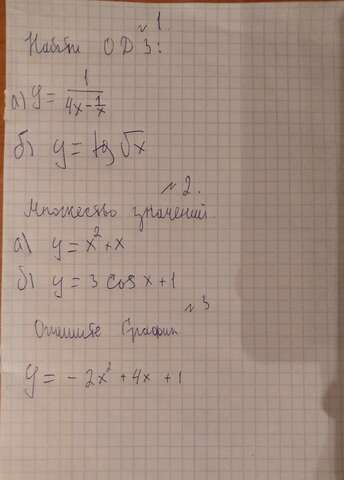 № 1.
Найти ОДЗ:
а) y = 1/(4x - 1/x)
б) y = tg √x
№ 2.
Множество значений
а) y = x² + x
б) y = 3 cos x + 1
№ 3
Опишите График
y = - 2x² + 4x + 1